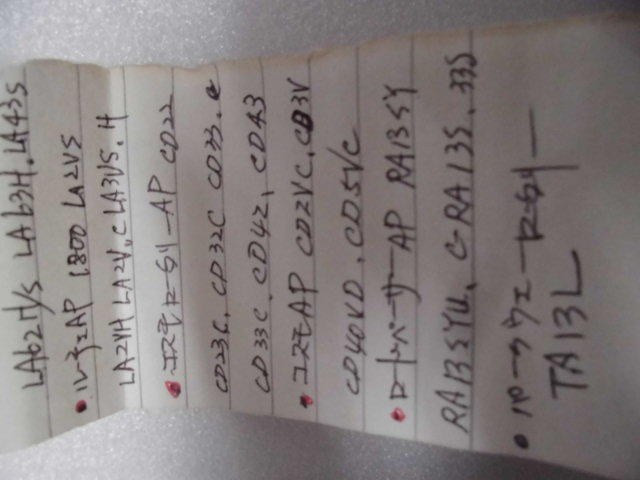 LA62H/S LA63H.LA43S
・ルーチェAP 1800 LA2VS
LA2VH LA2V.CLA3VS.H
・コスモロータリーAP CD22
CD23C、CD32C CD33.C
CD33C、CD42、CD43
・コスモAP CD2VC.CD3V
CD40VD、CD5VC
・ロードペーサーAP RA13SY
RA13SYU、C-RA13S、33S
・パークウェーロータリー
TA13L